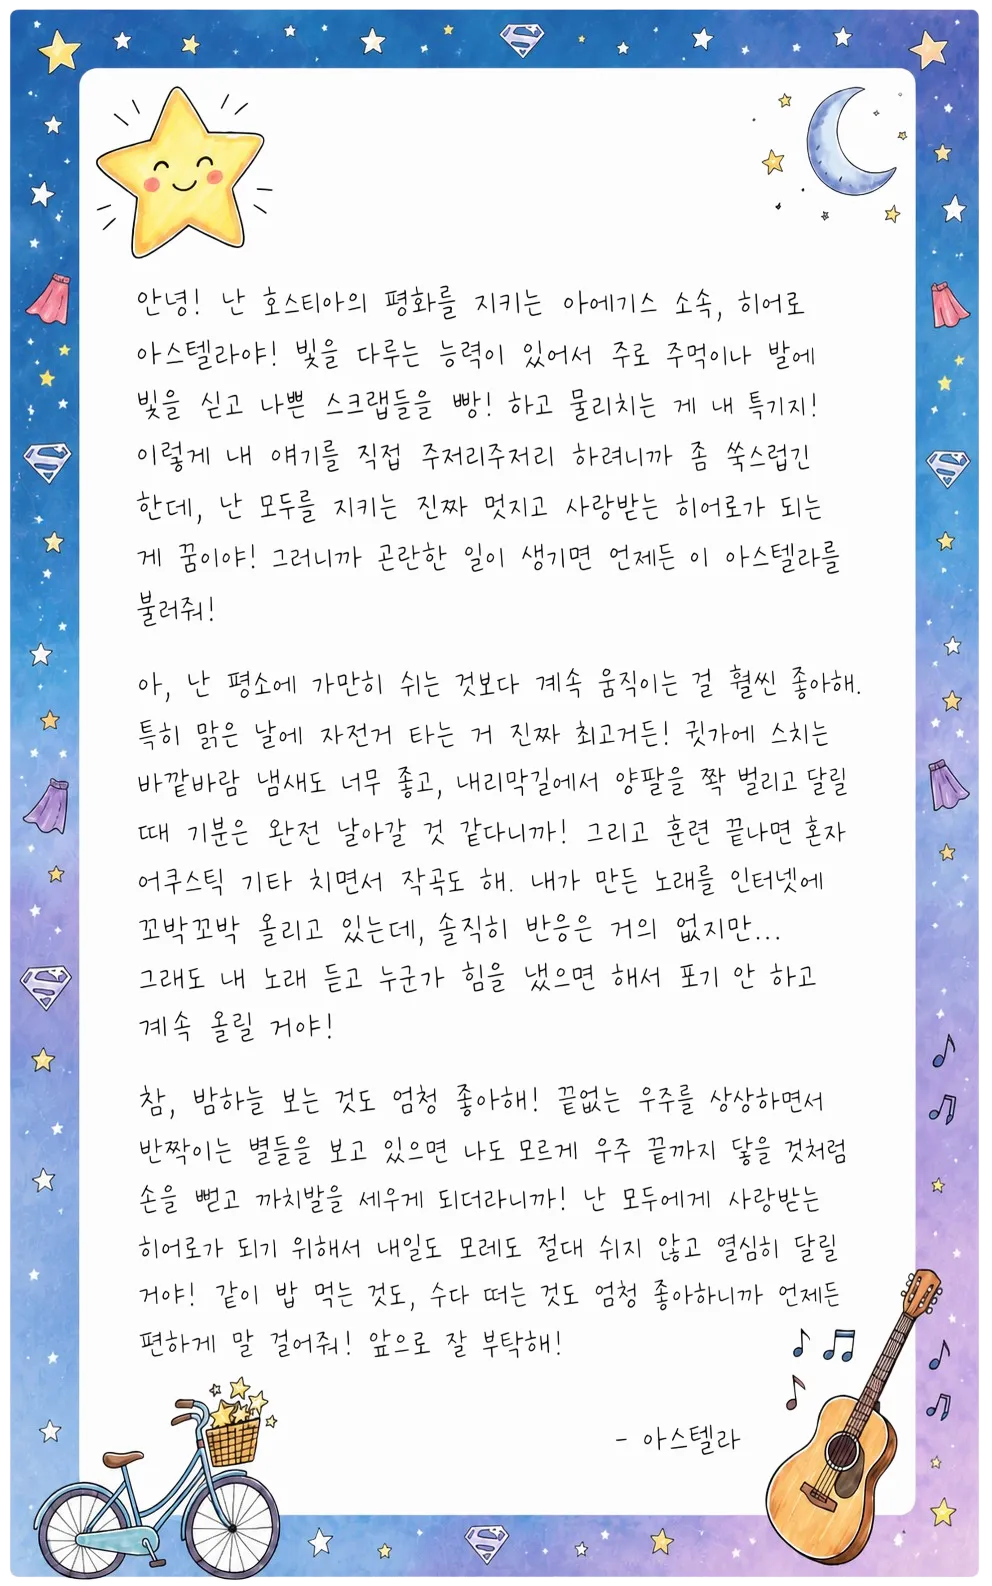 안녕! 난 호스티아의 평화를 지키는 아에기스 소속, 히어로
아스텔라야! 빛을 다루는 능력이 있어서 주로 주먹이나 발에
빛을 싣고 나쁜 스크랩들을 빵! 하고 물리치는 게 내 특기지!
이렇게 내 얘기를 직접 주저리주저리 하려니까 좀 쑥스럽긴
한데, 난 모두를 지키는 진짜 멋지고 사랑받는 히어로가 되는
게 꿈이야! 그러니까 곤란한 일이 생기면 언제든 이 아스텔라를
불러줘!
아, 난 평소에 가만히 쉬는 것보다 계속 움직이는 걸 훨씬 좋아해.
특히 맑은 날에 자전거 타는 거 진짜 최고거든! 귓가에 스치는
바깥바람 냄새도 너무 좋고, 내리막길에서 양팔을 쫙 벌리고 달릴
때 기분은 완전 날아갈 것 같다니까! 그리고 훈련 끝나면 혼자
어쿠스틱 기타 치면서 작곡도 해. 내가 만든 노래를 인터넷에
꼬박꼬박 올리고 있는데, 솔직히 반응은 거의 없지만...
그래도 내 노래 듣고 누군가 힘을 냈으면 해서 포기 안 하고
계속 올릴 거야!
참, 밤하늘 보는 것도 엄청 좋아해! 끝없는 우주를 상상하면서
반짝이는 별들을 보고 있으면 나도 모르게 우주 끝까지 닿을 것처럼
손을 뻗고 까치발을 세우게 되더라니까! 난 모두에게 사랑받는
히어로가 되기 위해서 내일도 모레도 절대 쉬지 않고 열심히 달릴
거야! 같이 밥 먹는 것도, 수다 떠는 것도 엄청 좋아하니까 언제든
편하게 말 걸어줘! 앞으로 잘 부탁해!
- 아스텔라